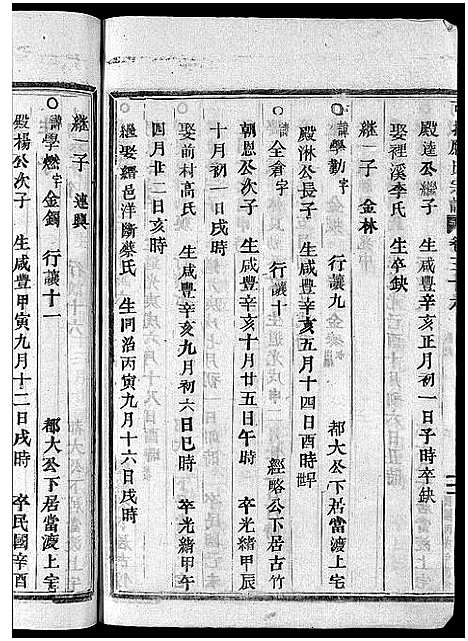 殿達公繼子 生咸豐辛亥正月初一日子時卒缺
娶裡溪李氏 生卒缺
繼一子 金林
諱學勤字 行讓九 都大公下居當渡上宅
殿淋公長子 生咸豐辛亥五月十四日酉時
諱全看字 行讓十 經略公下居古竹
朝恩公次子 生咸豐辛亥十月廿五日午時 卒光緒甲辰
十月初一日戌時
娶前村高氏 生咸豐辛亥九月初六日巳時 卒光緒甲午
四月廿二日亥時
繼娶縉邑洋斷蔡氏 生同治丙寅九月十六日戌時
繼一子 連興
諱學燃字金鐲 行讓十一 都大公下居當渡上宅
殿楊公次子 生咸豐甲寅九月十二日戌時 卒民國辛酉